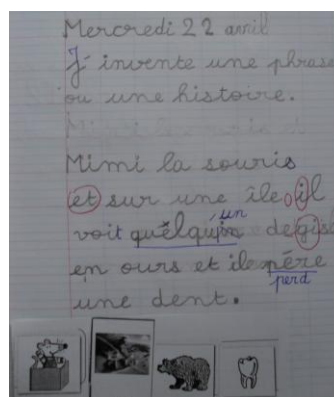 Mercredi 22 avril
J'invente une phrase
ou une histoire.
Mimi la souris
et sur une île il
un
voit quelquin degisé
en ours et ile père
perd
une dent.